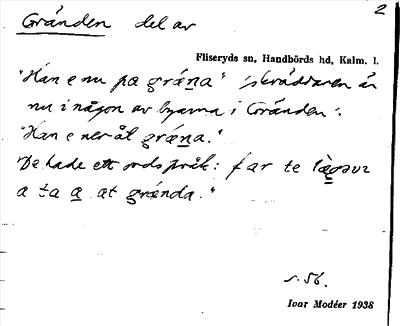 Gränden del av
2
Fliseryds sn, Handbörds hd, Kalm. l.
"Han e nu pa gräna" 'skräddaren är
nu i någon av byarna i Gränden'.
"Han e neråt gräna."
De hade ett ordspråk: far te
a ta a at grända."
s. 56.
Ivar Modéer 1938